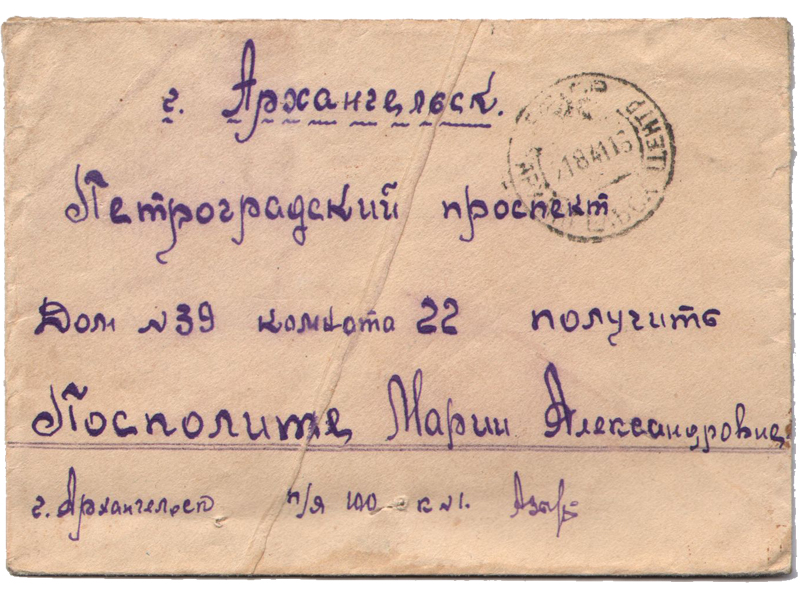 г. Архангельск.
Петроградский проспект
Дом №39 комната 22 получить
Посполите Марии Александровне
г. Архангельск п/я 100 к №1.